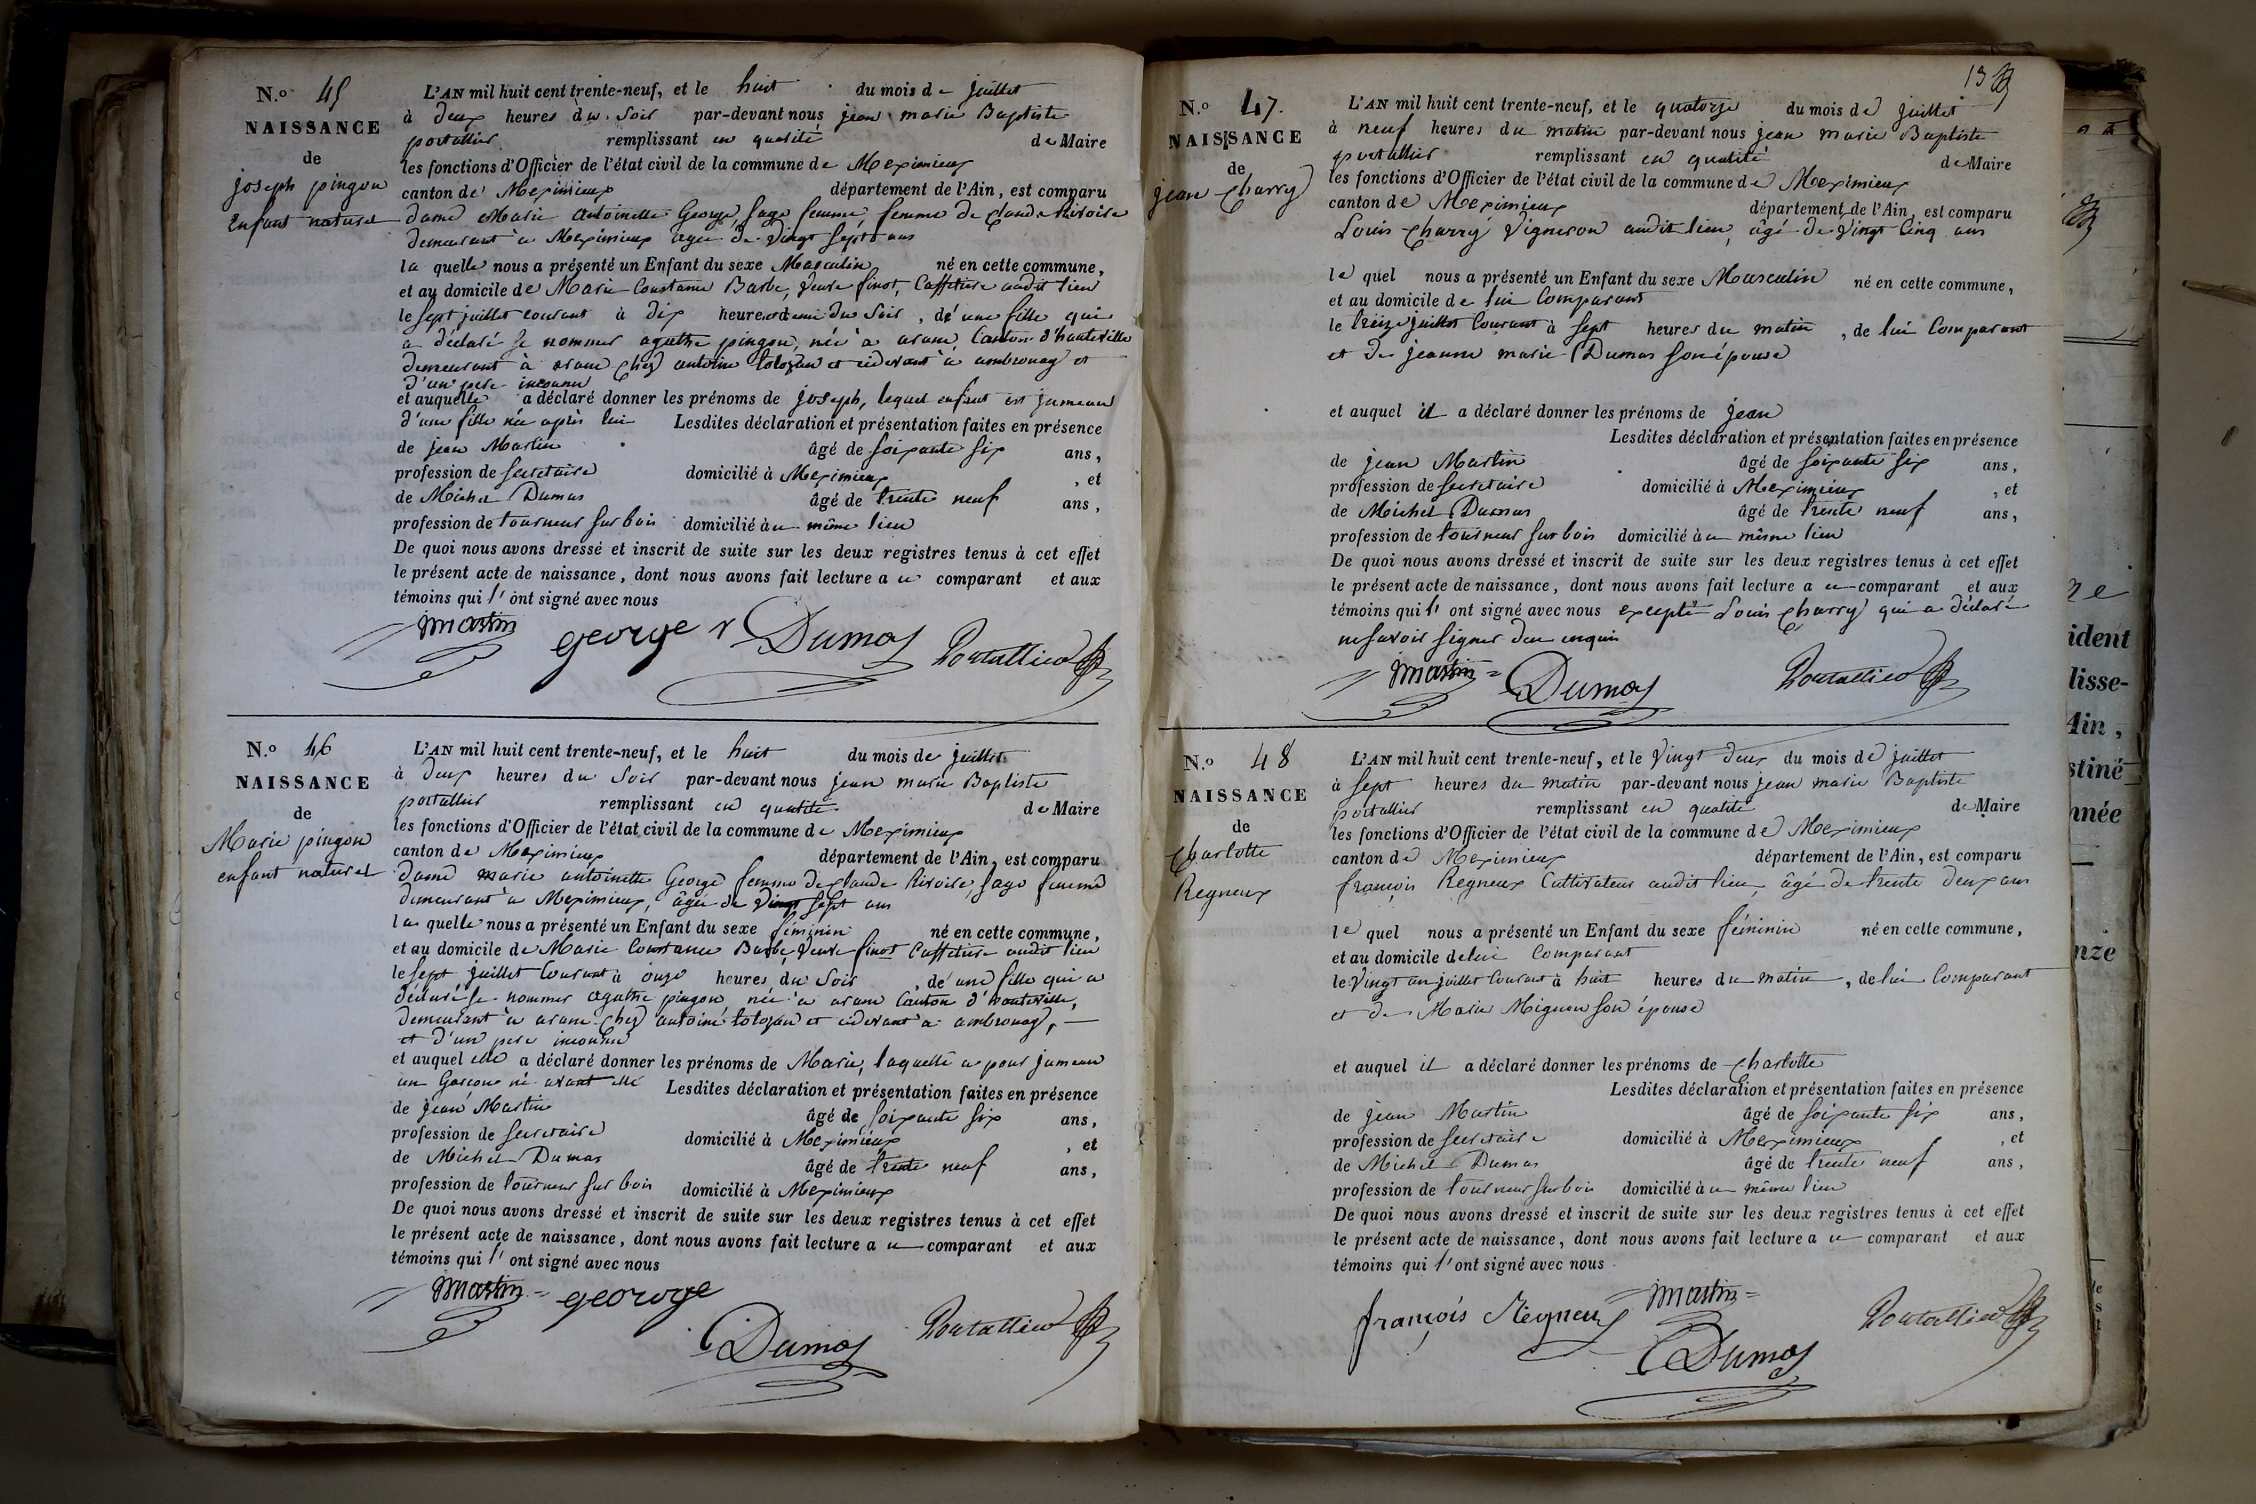 N.o 45
NAISSANCE
de
joseph pingon
Enfant naturel
L'AN mil huit cent trente-neuf, et le huit du mois de juillet
à deux heures du soir par-devant nous jean marie Baptiste
portallier remplissant en qualité de Maire
les fonctions d'Officier de l'état civil de la commune de Meximieux
canton de Meximieux département de l'Ain, est comparu
dame Marie antoinette George, sage femme, femme de Claude
demeurant à Meximieux agée de vingt sept ans
la quelle nous a présenté un Enfant du sexe Masculin né en cette commune,
et au domicile de Marie Constance Barbe, veuve finot, Caffetiere audit lieu
le sept juillet courant à dix heures et demi du soir, de une fille qui
a déclaré se nommer agathe pingon, née à aranc, Canton d'hauteville
demeurant à aranc chez antoine tolozan et cidevant à ambronay et
d'un pere inconnu
et auquel elle a déclaré donner les prénoms de joseph, lequel enfant est jumeau
d'une fille née après lui Lesdites déclaration et présentation faites en présence
de jean Martin âgé de soixante six ans,
profession de secretaire domicilié à Meximieux, et
de Michel Dumas âgé de trente neuf ans,
profession de tourneur sur bois domicilié à u même lieu
De quoi nous avons dressé et inscrit de suite sur les deux registres tenus à cet effet
le présent acte de naissance, dont nous avons fait lecture a u comparant et aux
témoins qui l' ont signé avec nous
martin george Dumas Portallier
N.o 46
NAISSANCE
de
Marie pingon
enfant naturel
L'AN mil huit cent trente-neuf, et le huit du mois de juillet
à deux heures du soir par-devant nous jean marie Baptiste
portallier remplissant en qualité de Maire
les fonctions d'Officier de l'état civil de la commune de Meximieux
canton de Meximieux département de l'Ain, est comparu
dame marie antoinette George femme de Claude, sage femme
demeurant à Meximieux, âgée de vingt sept ans
la quelle nous a présenté un Enfant du sexe féminin né en cette commune,
et au domicile de Marie Constance Barbe, veuve finot Caffetiere audit lieu
le sept juillet courant à onze heures du soir, de une fille qui a
déclaré se nommer agathe pingon, née à aranc Canton d'hauteville,
demeurant à aranc chez antoine tolozan et cidevant à ambronay,
et d'un pere inconnu
et auquel elle a déclaré donner les prénoms de Marie, laquelle a pour jumeau
un Garçon né avant elle Lesdites déclaration et présentation faites en présence
de jean Martin âgé de soixante six ans,
profession de secretaire domicilié à Meximieux, et
de Michel Dumas âgé de trente neuf ans,
profession de tourneur sur bois domicilié à Meximieux
De quoi nous avons dressé et inscrit de suite sur les deux registres tenus à cet effet
le présent acte de naissance, dont nous avons fait lecture a u comparant et aux
témoins qui l' ont signé avec nous
martin george
Dumas Portallier
13
N.o 47.
NAISSANCE
de
jean Charry
L'AN mil huit cent trente-neuf, et le quatorze du mois de juillet
à neuf heures du matin par-devant nous jean marie Baptiste
portallier remplissant en qualité de Maire
les fonctions d'Officier de l'état civil de la commune de Meximieux
canton de Meximieux département de l'Ain, est comparu
Louis Charry Vigneron audit lieu, âgé de vingt Cinq ans
le quel nous a présenté un Enfant du sexe Masculin né en cette commune,
et au domicile de lui Comparant
le treize juillet courant à sept heures du matin, de lui Comparant
et de jeanne marie Dumas son épouse
et auquel il a déclaré donner les prénoms de jean
Lesdites déclaration et présentation faites en présence
de jean Martin âgé de soixante six ans,
profession de secretaire domicilié à Meximieux, et
de Michel Dumas âgé de trente neuf ans,
profession de tourneur sur bois domicilié à u même lieu
De quoi nous avons dressé et inscrit de suite sur les deux registres tenus à cet effet
le présent acte de naissance, dont nous avons fait lecture a u comparant et aux
témoins qui l' ont signé avec nous excepté Louis Charry qui a déclaré
ne savoir signer de ce enquis
martin Dumas Portallier
N.o 48
NAISSANCE
de
Charlotte
Regneux
L'AN mil huit cent trente-neuf, et le vingt deux du mois de juillet
à sept heures du matin par-devant nous jean marie Baptiste
portallier remplissant en qualité de Maire
les fonctions d'Officier de l'état civil de la commune de Meximieux
canton de Meximieux département de l'Ain, est comparu
françois Regneux Cultivateur audit lieu, âgé de trente deux ans
le quel nous a présenté un Enfant du sexe féminin né en cette commune,
et au domicile de lui Comparant
le vingt un juillet courant à huit heures du matin, de lui Comparant
et de Marie Mignon son épouse
et auquel il a déclaré donner les prénoms de Charlotte
Lesdites déclaration et présentation faites en présence
de jean Martin âgé de soixante six ans,
profession de secretaire domicilié à Meximieux, et
de Michel Dumas âgé de trente neuf ans,
profession de tourneur sur bois domicilié à u même lieu
De quoi nous avons dressé et inscrit de suite sur les deux registres tenus à cet effet
le présent acte de naissance, dont nous avons fait lecture a u comparant et aux
témoins qui l' ont signé avec nous
françois Regneux martin Portallier
Dumas
ident
lisse-
Ain,
stiné
nnée
nze